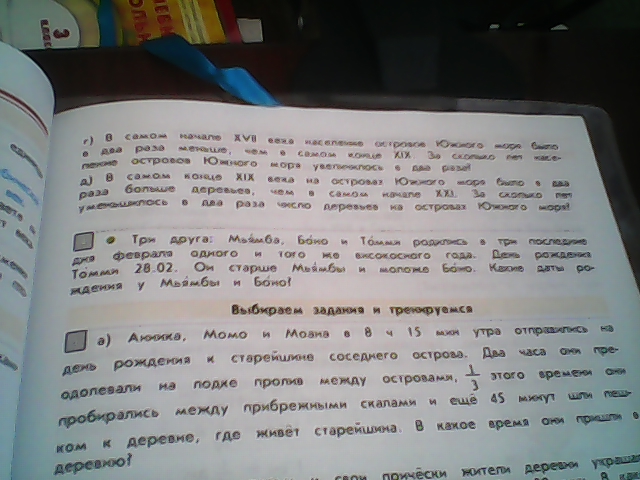 г) В самом начале XVII века население островов Южного моря было
в два раза меньше, чем в самом конце XIX. За сколько лет насе-
ление островов Южного моря увеличилось в два раза?
д) В самом конце XIX века на островах Южного моря было в два
раза больше деревьев, чем в самом начале XXI. За сколько лет
уменьшилось в два раза число деревьев на островах Южного моря?
Три друга: Мья́мба, Бо́но и То́мми родились в три последние
дня февраля одного и того же високосного года. День рождения
То́мми 28.02. Он старше Мья́мбы и моложе Бо́но. Какие даты ро-
ждения у Мья́мбы и Бо́но?
Выбираем задания и тренируемся
а) Анника, Момо и Моана в 8 ч 15 мин утра отправились на
день рождения к старейшине соседнего острова. Два часа они пре-
одолевали на лодке пролив между островами, 1/3 этого времени они
пробирались между прибрежными скалами и ещё 45 минут шли пеш-
ком к деревне, где живёт старейшина. В какое время они пришли в
деревню?
свои причёски жители деревни украшают
3